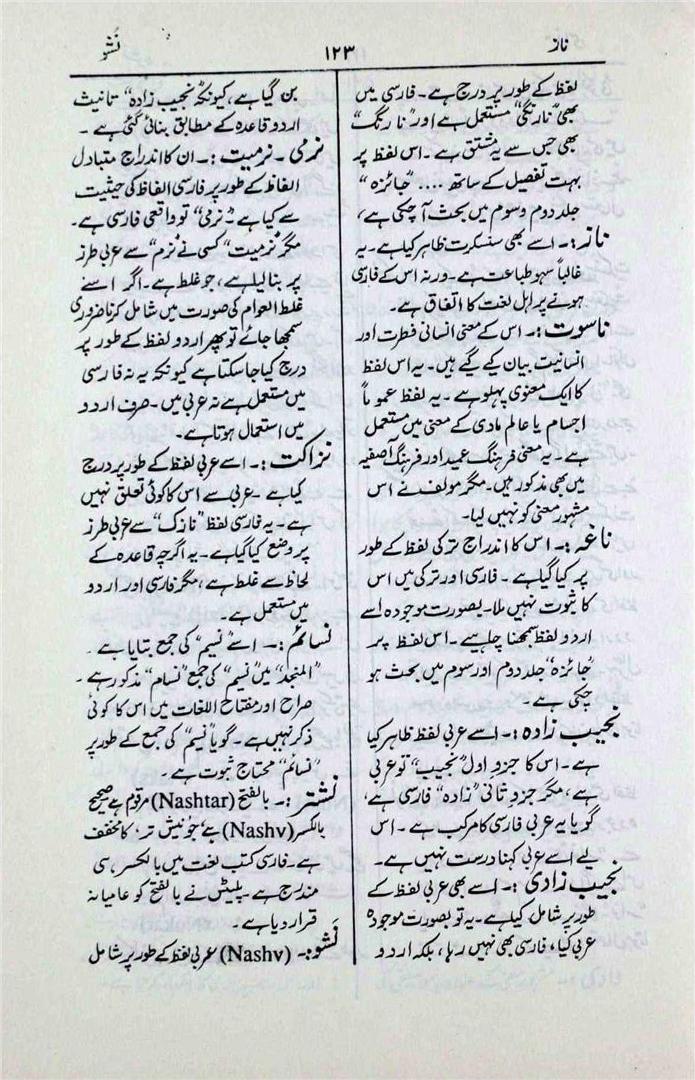 ناز
۱۲۳
نَشو
لفظ کے طور پر درج ہے۔ فارسی میں
بھی ”نارنگی“ مستعمل ہے اور ”نارنگ“
بھی جس سے یہ مشتق ہے۔ اس لفظ پر
بہت تفصیل کے ساتھ .... ”جائزہ“
جلد دوم وسوم میں بحث آ چکی ہے،
ناز :۔ اسے بھی سنسکرت ظاہر کیا ہے۔ یہ
غالباً سہو طباعت ہے۔ ورنہ اس کے فارسی
ہونے پر اہل لغت کا اتفاق ہے۔
ناسوت :۔ اس کے معنی انسانی فطرت اور
انسانیت بیان کیے گیے ہیں۔ یہ اس لفظ
کا ایک معنوی پہلو ہے۔ یہ لفظ عموماً
اجسام یا عالم مادی کے معنی میں مستعمل
ہے۔ یہ معنی فرہنگ عمید اور فرہنگ آصفیہ
میں بھی مذکور ہیں۔ مگر مولف نے اس
مشہور معنی کو نہیں لیا۔
ناغہ :۔ اس کا اندراج ترکی لفظ کے طور
پر کیا گیا ہے۔ فارسی اور ترکی میں اس
کا ثبوت نہیں ملا۔ بصورت موجودہ اسے
اردو لفظ سمجھنا چاہیے۔ اس لفظ پر
”جائزہ“ جلد دوم اور سوم میں بحث ہو
چکی ہے۔
نجیب زادہ :۔ اسے عربی لفظ ظاہر کیا
ہے۔ اس کا جزو اول ”نجیب“ تو عربی
ہے، مگر جزو ثانی ”زادہ“ فارسی ہے،
گویا یہ عربی فارسی کا مرکب ہے۔ اس
لیے اسے عربی کہنا درست نہیں ہے۔
نجیب زادی :۔ اسے بھی عربی لفظ کے
طور پر شامل کیا ہے۔ یہ تو بصورت موجودہ
عربی کیا، فارسی بھی نہیں رہا، بلکہ اردو
بن گیا ہے، کیونکہ ”نجیب زادہ“ تانیث
اردو قاعدہ کے مطابق بنائی گئی ہے۔
نرمی ۔ نرمیت :۔ ان کا اندراج متبادل
الفاظ کے طور پر فارسی الفاظ کی حیثیت
سے کیا ہے۔ ”نرمی“ تو واقعی فارسی ہے۔
مگر ”نرمیت“ کسی نے ”نرم“ سے عربی طرز
پر بنا لیا ہے، جو غلط ہے۔ اگر اسے
غلط العوام کی صورت میں شامل کرنا ضروری
سمجھا جائے تو پھر اردو لفظ کے طور پر
درج کیا جا سکتا ہے کیونکہ یہ نہ فارسی
میں مستعمل ہے نہ عربی میں۔ صرف اردو
میں استعمال ہوتا ہے۔
نزاکت :۔ اسے عربی لفظ کے طور پر درج
کیا ہے۔ عربی سے اس کا کوئی تعلق نہیں
ہے۔ یہ فارسی لفظ ”نازک“ سے عربی طرز
پر وضع کیا گیا ہے۔ یہ اگرچہ قاعدہ کے
لحاظ سے غلط ہے، مگر فارسی اور اردو
میں مستعمل ہے۔
نسائم :۔ اسے ”نسیم“ کی جمع بتایا ہے۔
”المنجد“ میں ”نسیم“ کی جمع ”نسام“ مذکور ہے۔
صراح اور مفتاح اللغات میں اس کا کوئی
ذکر نہیں ہے۔ گویا ”نسیم“ کی جمع کے طور پر
”نسائم“ محتاج ثبوت ہے۔
نشتر :۔ بالفتح (Nashtar) مرقوم ہے صحیح
بالکسر (Nashv) ہے، جو ”نیش تر“ کا مخفف
ہے۔ فارسی کتب لغت میں بالکسر ہی
مندرج ہے۔ پلیٹس نے بالفتح کو عامیانہ
قرار دیا ہے۔
نَشو :۔ (Nashv) عربی لفظ کے طور پر شامل